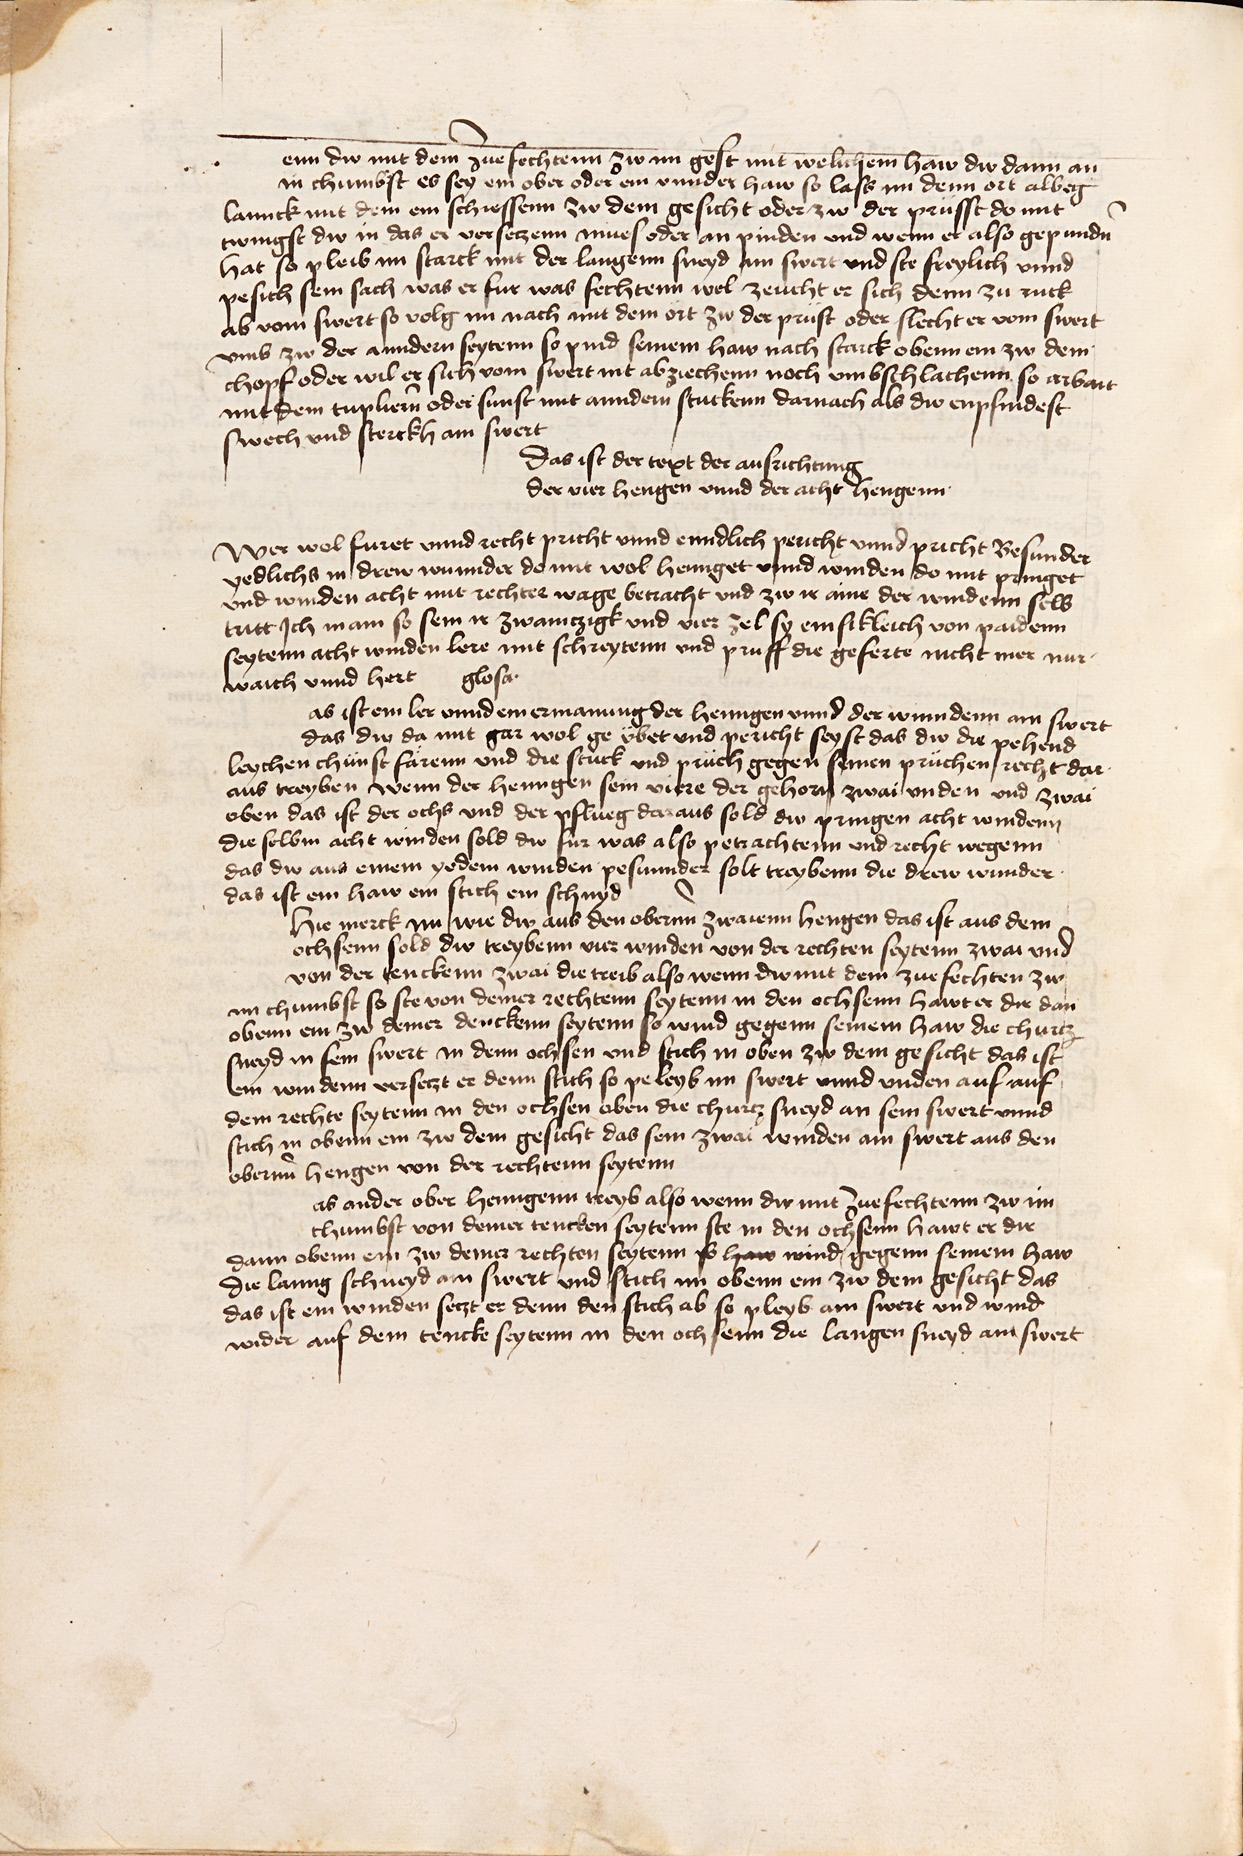 enn dw mit dem zuefechtenn zw im gest mit welichem haw dw dann an
in chumbst es sey ein ober oder ein unnder haw so lass im denn ort albeg
lannck mit dem ein schiessenn zw dem gesicht oder zw der prüsst do mit
twingst dw in das er versetzenn mues oder an pinden und wenn er also gepundn
hat so pleib im starck mit der langenn sneyd am swert und ste freylich unnd
pesich sein sach was er fur was fechtenn wel zeucht er sich denn zu ruck
ab vom swert so volg im nach mit dem ort zw der prüst oder slecht er vom swert
umb zw der anndern seytenn so pind seinem haw nach starck obenn ein zw dem
chopf oder wil er sich vom swert nit abziechenn noch umbschlachenn so arbait
mit dem tuplierñ oder sunst mit anndern stuckenn darnach als dw enpfindest
swech und sterckh am swert
Das ist der text der ausrichtung
der vier hengen unnd der acht hengenn
Wer wol furet unnd recht pricht unnd enndlich pericht unnd pricht Besunder
yedlichs in drew wunnder do mit wol hennget unnd winden do mit pringet
und winden acht mit rechter wage betracht und zw ir aine der windenn selb
tritt Ich main so sein ir zwainczigk und vier zel sy einsikleich von paidenn
seytenn acht winden lere mit schreytenn und prüff die geferte nicht mer nur
waich unnd hert glosa
as ist ein ler unnd ein ermanung der henngen unnd der winndenn am swert
das dw da mit gar wol ge übet und pericht seyst das dw die pehend
leychen chünst färenn und die stuck und prüch gegen seinen prüchen recht dar
aus treyben wenn der henngen sein viere der gehorn zwai unden und zwai
oben das ist der ochs und der pflueg dar aus sold dw pringen acht windenn
die selbm acht winden sold dw fur was also petrachtenn und recht wegenn
das dw aus einem yedem winden pesunnder solt treybenn die drew wunder
das ist ein haw ein stich ein schnyd
Hie merck nu wie dw aus den obernn zwaienn hengen das ist aus dem
ochsenn sold dw treybenn vier winden von der rechten seytenn zwai und
von der tenckenn zwai die treib also wenn dw mit dem zuefechten zw
im chumbst so ste von deiner rechtenn seytenn in den ochsenn hawt er dir dan
obenn ein zw deiner denckenn seytenn so wind gegenn seinem haw die churcz
sneyd in sein swert in denn ochsen und stich in oben zw dem gesicht das ist
ein windenn versetzt er denn stich so peleyb im swert unnd unden auf auf
dem rechte seytenn in den ochsen oben die churcz sneyd an sein swert unnd
stich in obenn ein zw dem gesicht das sein zwai winden am swert aus den
obernn hengen von der rechtenn seytenn
as ander ober henngenn treyb also wenn dw mit zuefechtenn zw im
chumbst von deiner tencken seytenn ste in den ochsenn hawt er dir
dann obenn ein zw deiner rechten seytenn so haw wind gegenn seinem haw
die lanng schneyd an swert und stich im obenn ein zw dem gesicht das
das ist ein winden setzt er denn den stich ab so pleyb am swert und wind
wider auf dem tencke seytenn in den ochsenn die langen sneyd am swert